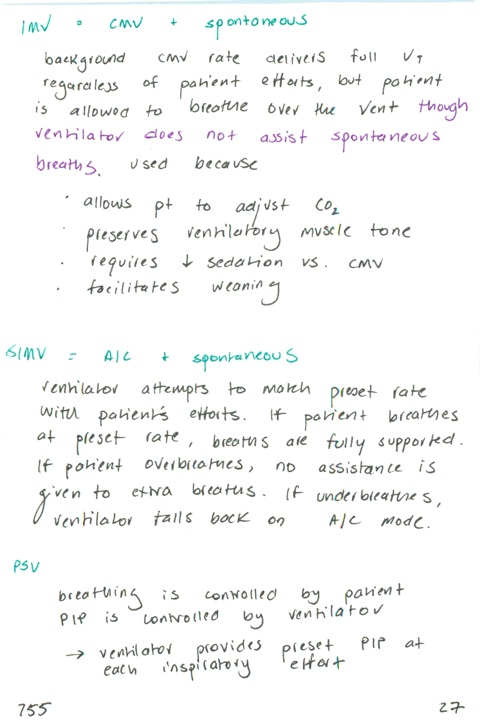 IMV = CMV + spontaneous
background CMV rate delivers full VT
regardless of patient efforts, but patient
is allowed to breathe over the vent though
ventilator does not assist spontaneous
breaths. Used because
· allows pt to adjust CO2
· preserves ventilatory muscle tone
· requires ↓ sedation vs. CMV
· facilitates weaning
SIMV = A/C + spontaneous
ventilator attempts to match preset rate
with patient's efforts. If patient breathes
at preset rate, breaths are fully supported.
If patient overbreathes, no assistance is
given to extra breaths. If underbreathes,
ventilator falls back on A/C mode.
PSV
breathing is controlled by patient
PIP is controlled by ventilator
→ ventilator provides preset PIP at
each inspiratory effort
755 27